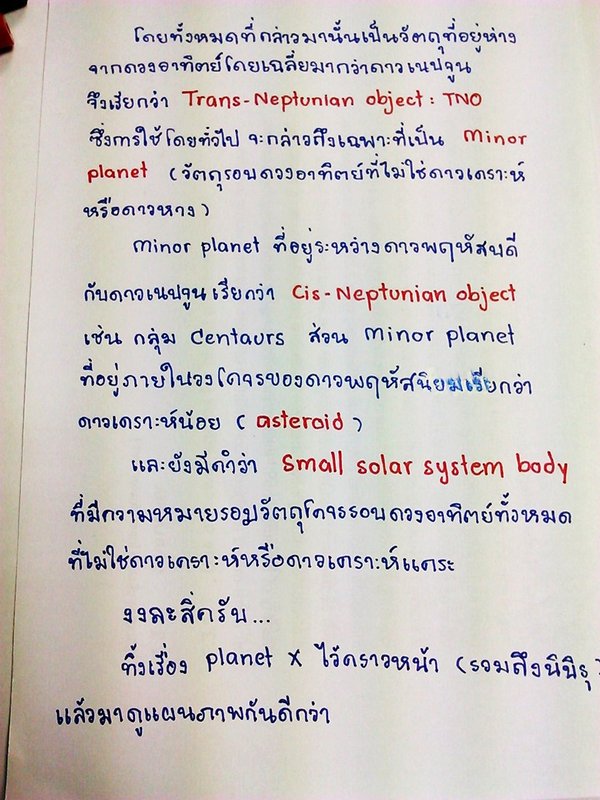 โดยทั้งหมดที่กล่าวมานั้นเป็นวัตถุที่อยู่ห่าง
จากดวงอาทิตย์โดยเฉลี่ยมากว่าดาวเนปจูน
จึงเรียกว่า Trans-Neptunian object : TNO
ซึ่งการใช้โดยทั่วไป จะกล่าวถึงเฉพาะที่เป็น Minor
planet (วัตถุรอบดวงอาทิตย์ที่ไม่ใช่ดาวเคราะห์
หรือดาวหาง)
Minor planet ที่อยู่ระหว่างดาวพฤหัสบดี
กับดาวเนปจูน เรียกว่า Cis-Neptunian object
เช่น กลุ่ม Centaurs ส่วน Minor planet
ที่อยู่ภายในวงโคจรของดาวพฤหัสนิยมเรียกว่า
ดาวเคราะห์น้อย (asteroid)
และยังมีคำว่า Small solar system body
ที่มีความหมายรวมวัตถุโคจรรอบดวงอาทิตย์ทั้งหมด
ที่ไม่ใช่ดาวเคราะห์หรือดาวเคราะห์แคระ
งงละสิ่ครับ...
ทิ้งเรื่อง planet X ไว้คราวหน้า (รวมถึงนิบิรุ)
แล้วมาดูแผนภาพกันดีกว่า